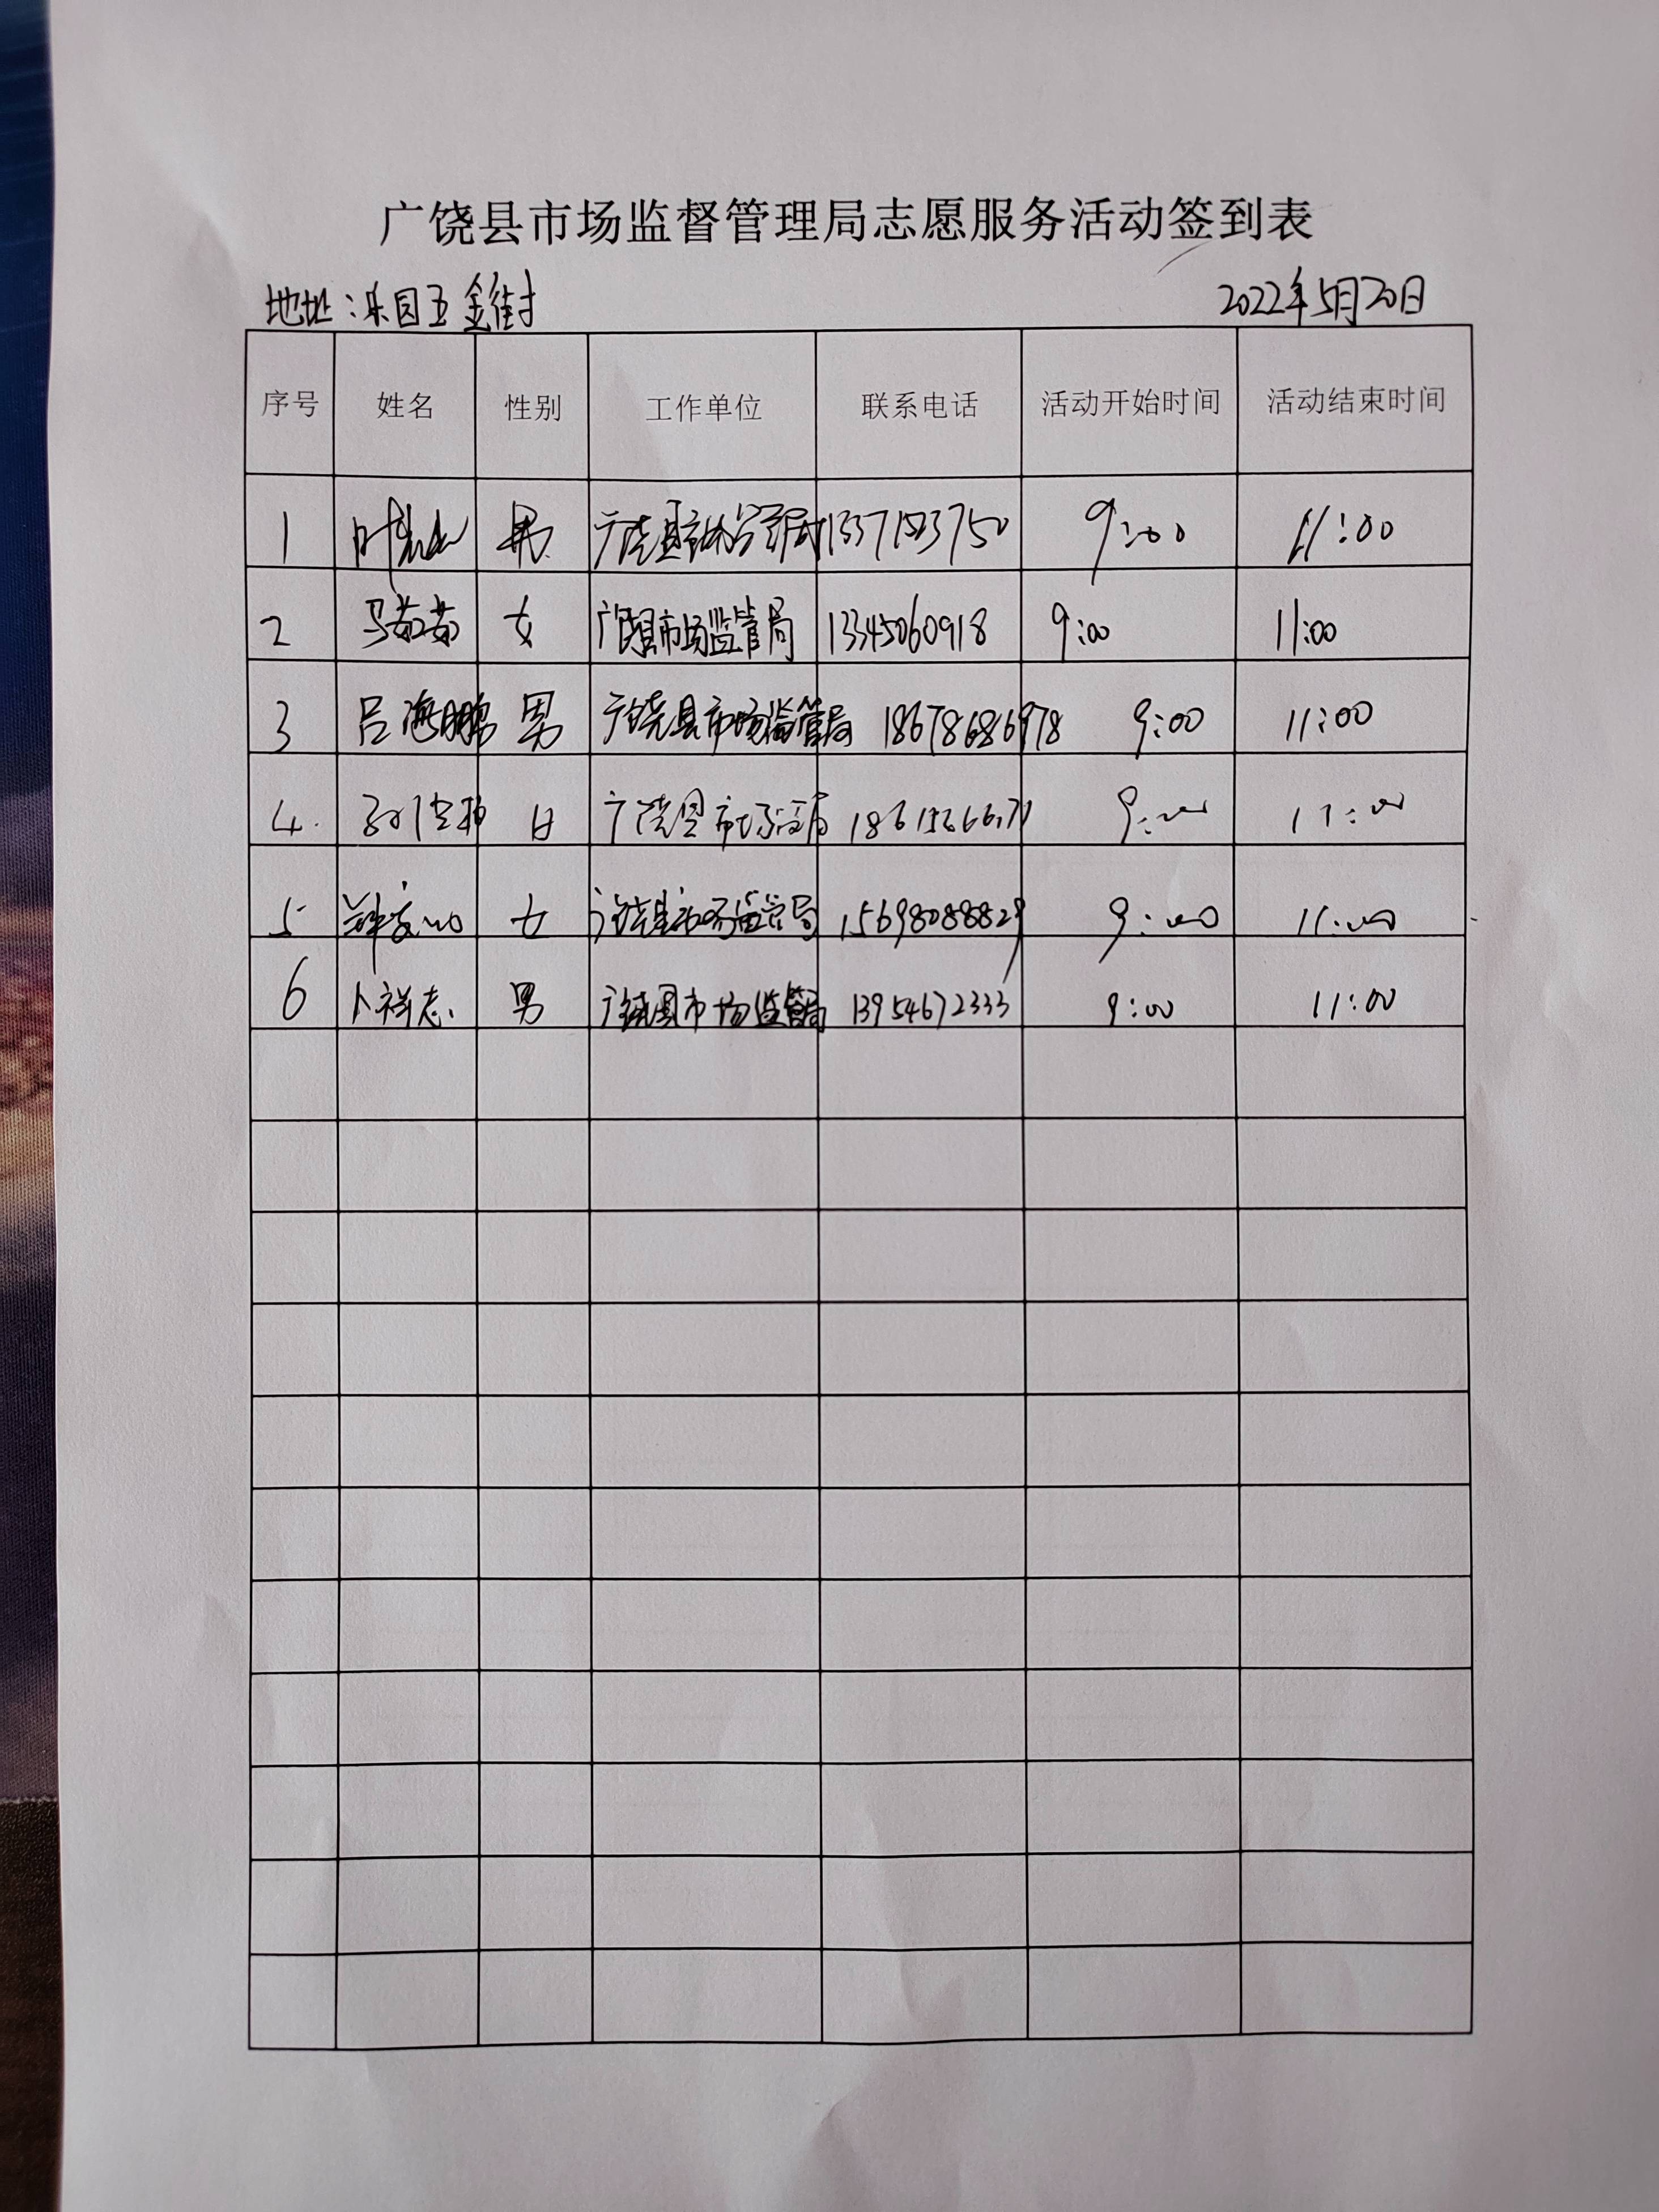 广饶县市场监督管理局志愿服务活动签到表
地址：乐园五金街 2022年5月20日
序号 姓名 性别 工作单位 联系电话 活动开始时间 活动结束时间
1 男 9:00 11:00
2 马茹茹 女 广饶县市场监管局 13345060918 9:00 11:00
3 吕海鹏 男 广饶县市场监管局 18678686978 9:00 11:00
4. 广饶县市场监管局 9:00 11:00
5 女 广饶县市场监管局 15698088829 9:00 11:00
6 卜祥志 男 广饶县市场监管局 13954672333 9:00 11:00